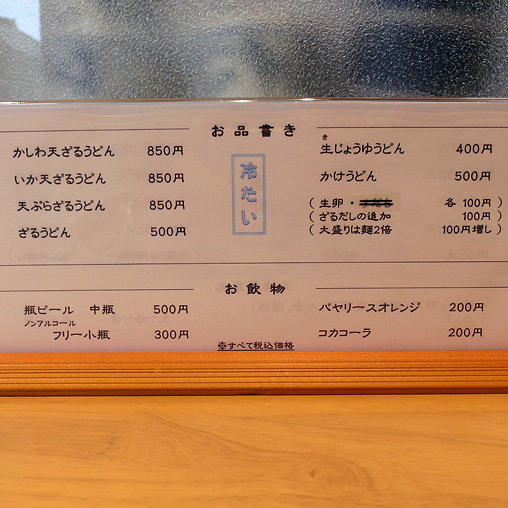 お品書き
冷たい
かしわ天ざるうどん 850円
いか天ざるうどん 850円
天ぷらざるうどん 850円
ざるうどん 500円
き
生じょうゆうどん 400円
かけうどん 500円
( 生卵・ 各 100円 )
( ざるだしの追加 100円 )
( 大盛りは麺2倍 100円増し )
お飲物
瓶ビール 中瓶 500円
ノンアルコール
フリー小瓶 300円
バヤリースオレンジ 200円
コカコーラ 200円
※すべて税込価格